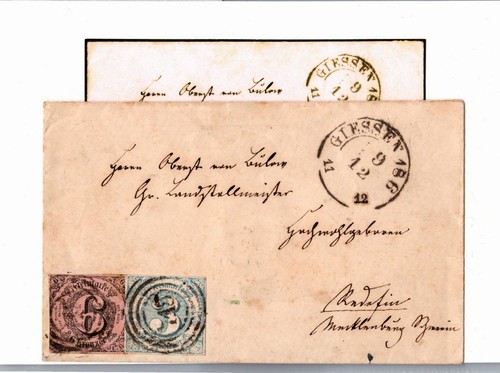 Herrn Oberst von Bülow
GIESSEN 186
11
9
12
GIESSEN 186
11
9
12
12
Herrn Oberst von Bülow
Gr. Landstallmeister
Hochwohlgeboren
Redefin
Mecklenburg Schwerin
6
3